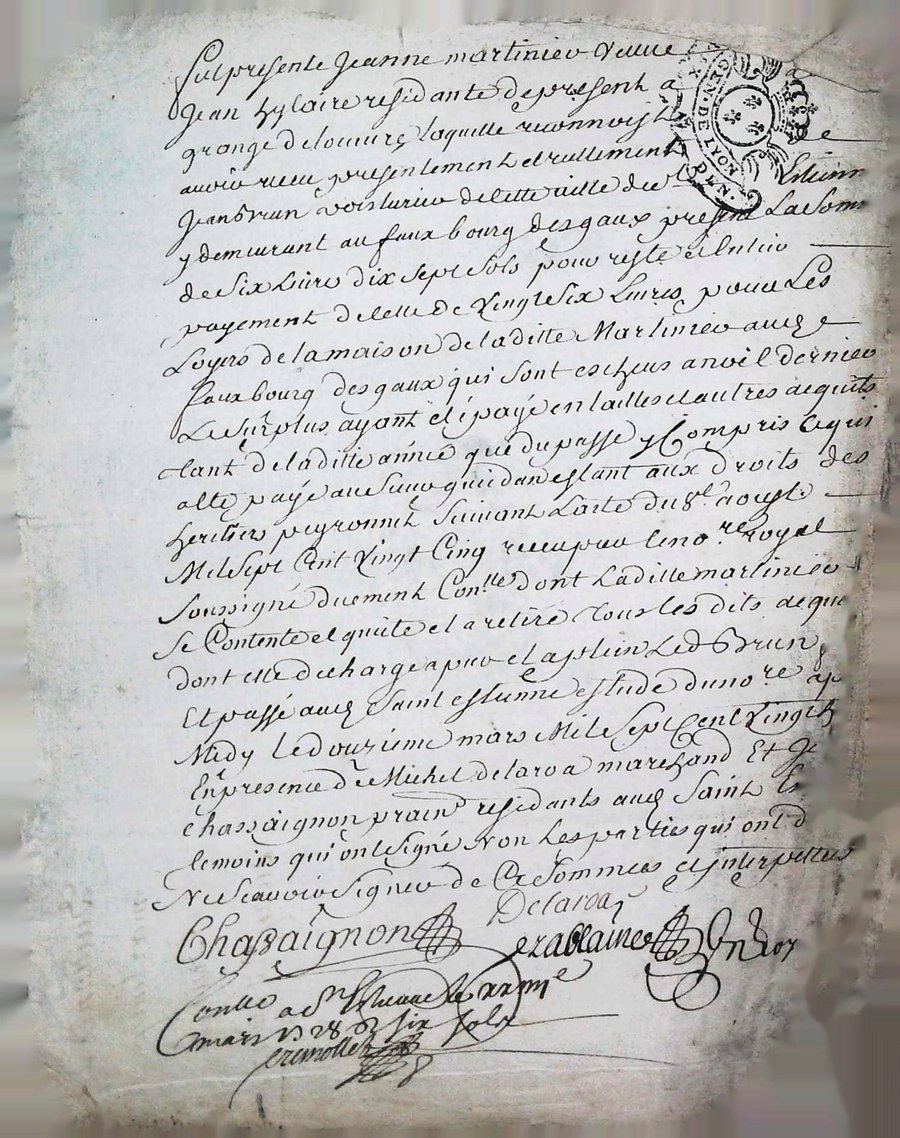 fut presente Jeanne martinier veuve
Jean hylaire residante de present a
grange delouure laquelle reconnoist
avoir receu presentement et reellement
Jean brun voiturier de cette ville de St Etienn
y demeurant au faux bourg des gaux present La Som
de Six Livres dix sept Sols pour reste et Entier
payement de celle de Vingt Six Livres pour Les
Loyers de la maison de la ditte Martinier aud
faux bourg des gaux qui sont escheus a dernier
Le Surplus ayant eté payé en tailles et autres acquits
tant de la ditte année que du passé y Compris Ce qui
a eté payé au Sieur quidan estant aux droits des
heritiers peyronnet Suivant Lacte du 8e aoust
Mil Sept Cent Vingt Cinq receu par le nore royal
Soussigné duement Conllé dont La ditte martinier
Se Contente et quitte et a retiré tous les dits acqu
dont elle decharge a pur et a plein Led Brun
Et passé aud Saint estienne estude du nore ap
Midy Le douzieme mars Mil Sept Cent Vingt h
En presence de Michel delaroa marchand Et
chassaignon residants aud Saint Es
temoins qui ont Signé Non Les parties qui ont d
Ne Scavoir Signer de Ce Sommées et interpellées
Chassaignon Delaroa
Conllé a St Estienne le xxiiie
mars 1728 R six sols
GEN. DE MONT